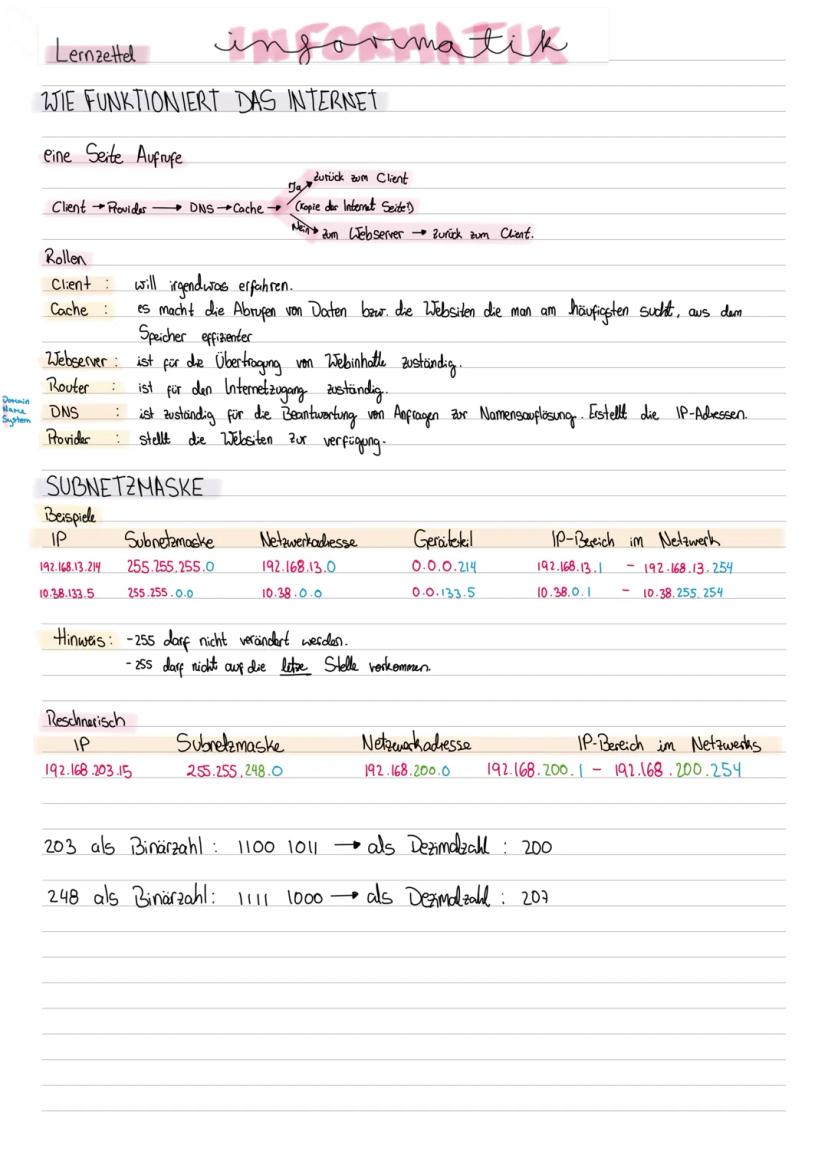 Lernzettel
INFORMATIK
informatik
WIE FUNKTIONIERT DAS INTERNET
eine Seite Aufrufe
Ja zurück zum Client
Client → Provider → DNS → Cache → (Kopie der Internet Seite?)
Nein → zum Webserver → zurück zum Client.
Rollen
Client : will irgendwas erfahren.
Cache : es macht die Abrufen von Daten bzw. die Websiten die man am häufigsten sucht, aus dem
Speicher effizienter
Webserver : ist für die Übertragung von Webinhalte zuständig.
Router : ist für den Internetzugang zuständig.
Domain
Name
System
DNS : ist zuständig für die Beantwortung von Anfragen zur Namensauflösung. Erstellt die IP-Adressen.
Provider : stellt die Websiten zur verfügung.
SUBNETZMASKE
Beispiele
IP Subnetzmaske Netzwerkadresse Geräteteil IP-Bereich im Netzwerk
192.168.13.214 255.255.255.0 192.168.13.0 0.0.0.214 192.168.13.1 - 192.168.13.254
10.38.133.5 255.255.0.0 10.38.0.0 0.0.133.5 10.38.0.1 - 10.38.255.254
Hinweis: -255 darf nicht verändert werden.
-255 darf nicht auf die letze Stelle vorkommen.
Reschnerisch
IP Subnetzmaske Netzwerkadresse IP-Bereich im Netzwerks
192.168.203.15 255.255.248.0 192.168.200.0 192.168.200.1 - 192.168.200.254
203 als Binärzahl : 1100 1011 → als Dezimalzahl : 200
248 als Binärzahl: 1111 1000 → als Dezimalzahl : 207